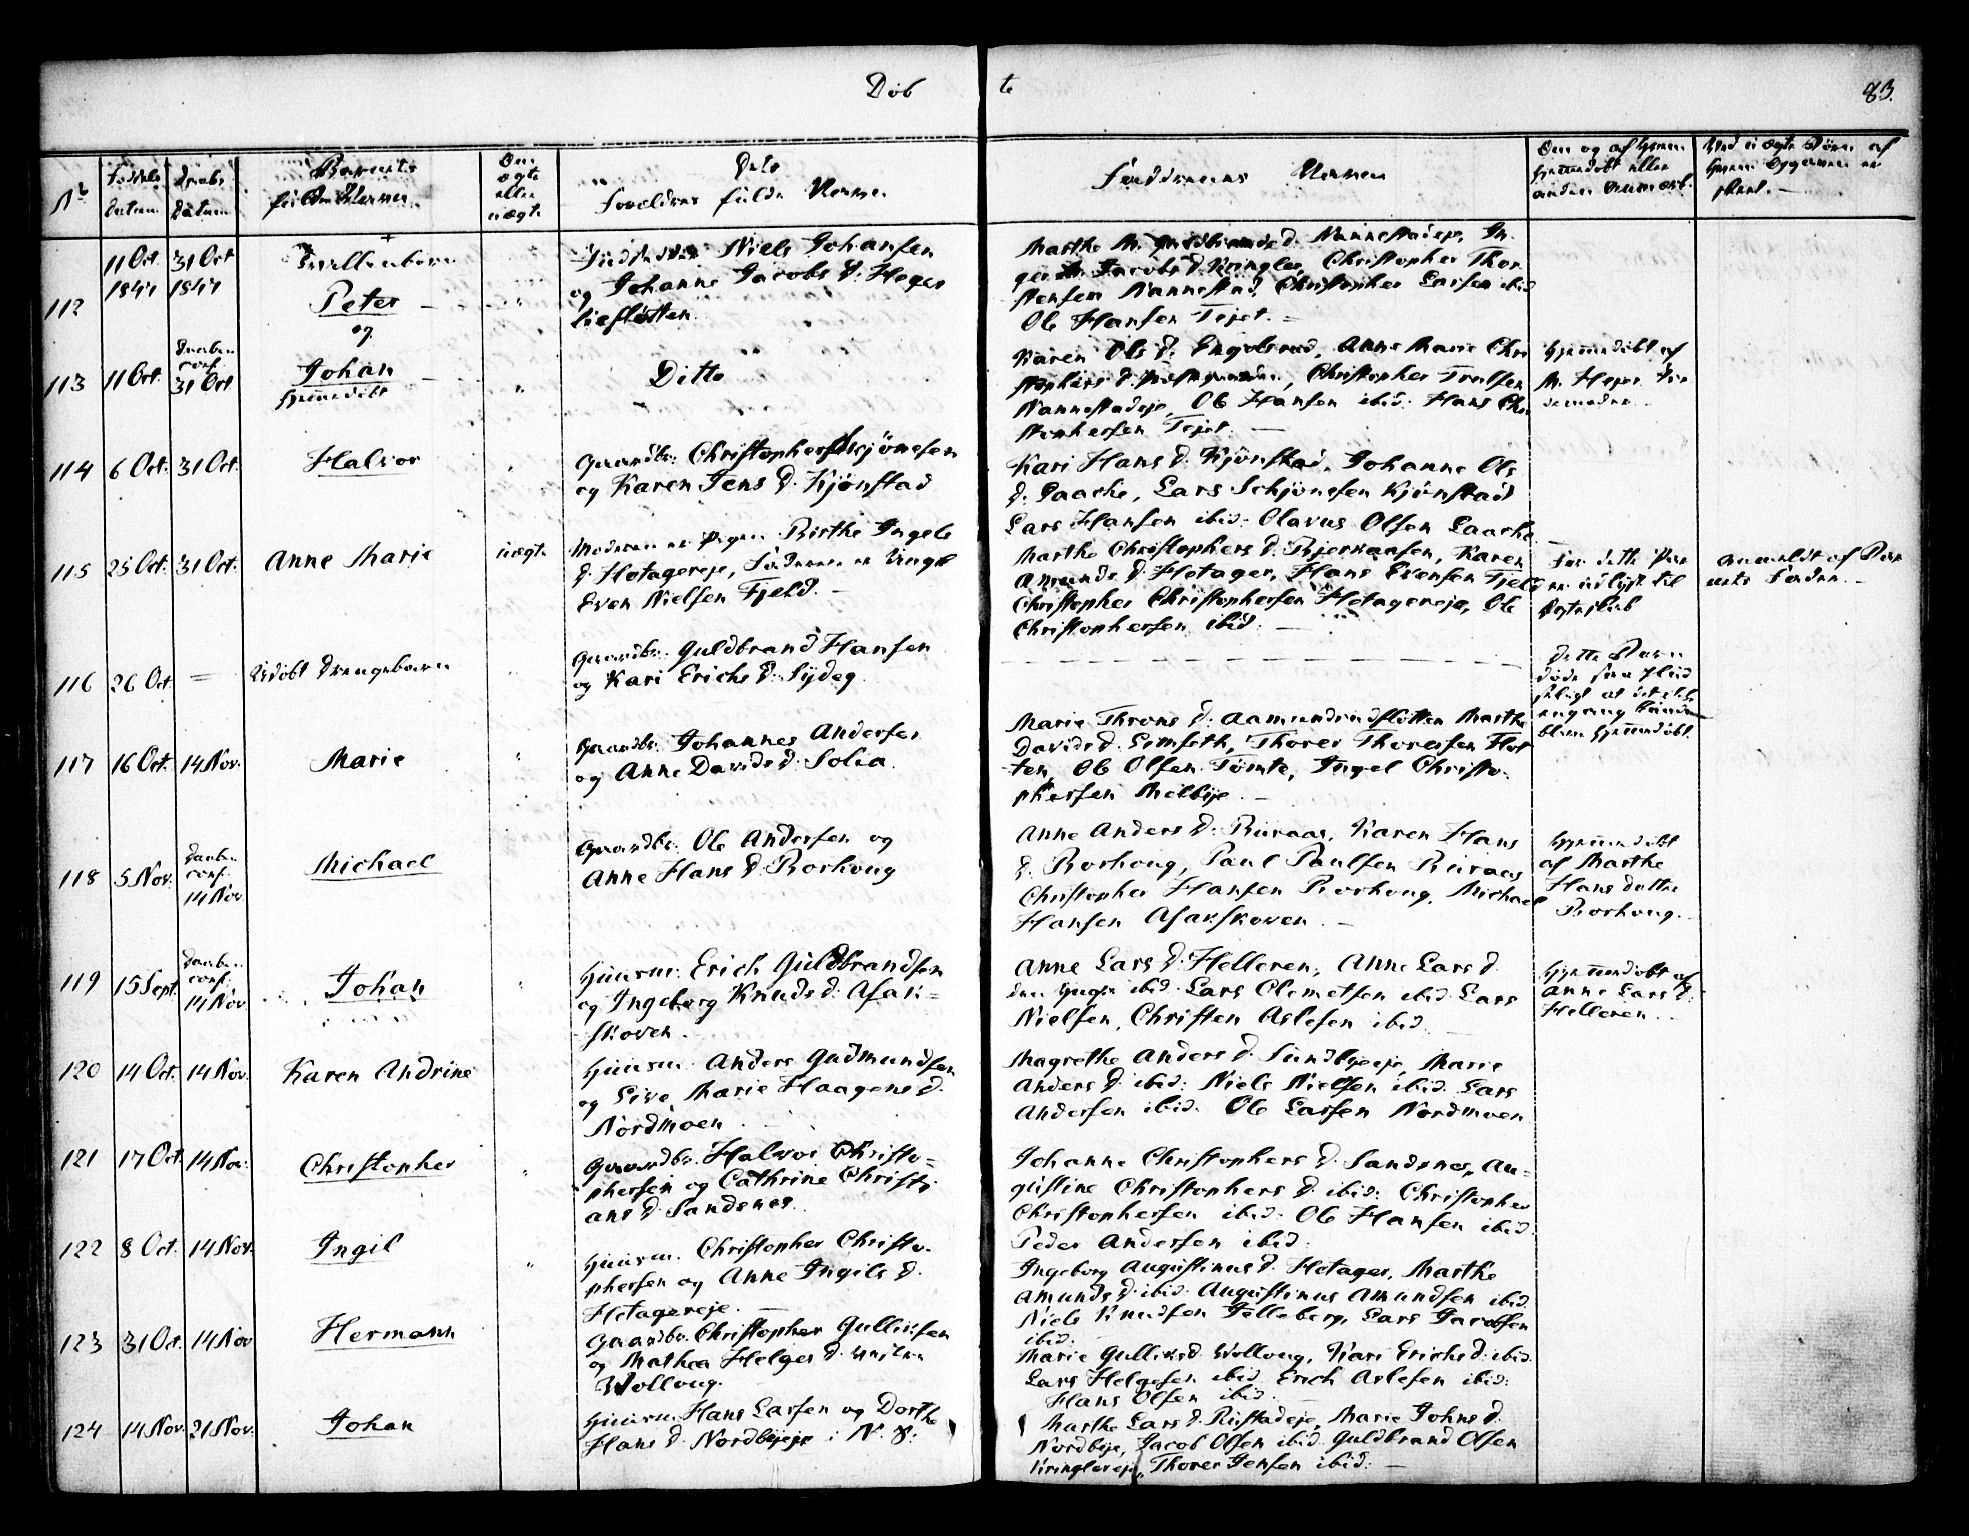 Døb
t
83.
No
Fødsels
Datum
Daabs
Datum
Barnets
fulde Navn
Om
ægte
eller
uægte
Dets
Forældres fulde Navne
Faddernes Navne
112
11 Oct.
1847
31 Oct
1847
Tvillinbørn
Peter
og
Niels Johansen
og Johanne Jacobs D. Heger
Christopher Thor
stensen Nannestad, Christopher Larsen ibid
Ole Hansen Tejet.
113
11 Oct.
Daaben
conf.
31 Oct
Johan
hjemmedøbt
Ditto
Karen Ols D. Engelsrud, Anne Marie Chri
Christopher Troelsen
Nannestadeje, Ole Hansen ibid. Hans Chri
stophersen Tejet.
Hjemmedøbt af
114
6 Oct.
31 Oct.
Halvor
Gaardbr. Christopher Schjønesen
og Karen Jens D. Kjønstad
Kari Hans D. Kjønstad, Johanne Ols
D. Laache, Lars Schjønesen Kjønstad
Lars Hansen ibid. Olavus Olsen Laache
115
25 Oct.
31 Oct.
Anne Marie
uægte
Moderen er Pigen Birthe Ingels
D. Hotagereje, Faderen er Ungk
Even Nielsen Fjeld.
Marthe Christophers D. Bjerkaasen, Karen
Amunds D. Hotager, Hans Evensen Fjeld
Christopher Christophersen Hotagereje, Ole
Christophersen ibid.
For dette Par
er udlyst til
Ægteskab
Anmeldt af Bar
nets Fader.
116
26 Oct.
Udøbt Drengebarn
Gaardbr. Guldbrand Hansen
og Kari Erichs D. Sydeg
Dette Barn
døde
at det ikke
engang kunde
blive hjemmedøbt.
117
16 Oct.
14 Nov.
Marie
Gaardbr. Johannes Andersen
og Anne Davids D. Solia
Marie Throns D. Aamundrudfløtten Marthe
Davids D. Semseth, Thorer Thoresen Fløt
ten, Ole Olsen Tømte, Ingel Christo-
phersen Melbye.
118
5 Nov.
Daaben
conf.
14 Nov
Michael
Gaardbr. Ole Andersen og
Anne Hans D. Borhoug
Anne Anders D. Buraas, Karen Hans
D. Borhoug, Paul Paulsen Buraas
Christopher Hansen Borhoug, Michael
Hansen Asakskoven.
Hjemmedøbt
af Marthe
Hansdatter
Borhoug.
119
15 Sept.
Daaben
conf.
14 Nov
Johan
Huusm. Erich Guldbrandsen
og Ingeborg Knuds D. Asak-
skoven.
Anne Lars D. Helleren, Anne Lars D.
den yngre ibid. Lars Clemetsen ibid. Lars
Nielsen, Christen Aslesen ibid
Hjemmedøbt af
Anne Lars D.
Helleren.
120
14 Oct.
14 Nov.
Karen Andrine
Huusm. Anders Gudmundsen
og Live Marie Haagens D.
Nordmoen.
Magrethe Anders D. Sundbyeje, Marie
Anders D. ibid: Niels Nielsen ibid. Lars
Andersen ibid. Ole Larsen Nordmoen
121
17 Oct.
14 Nov.
Christopher
Gaardbr. Halvor Christo-
phersen og Cathrine Christi
ans D. Sandsnes.
Johanne Christophers D. Sandsnes, Au-
gustine Christophers D. ibid: Christopher
Christophersen ibid. Ole Hansen ibid.
Peder Andersen ibid.
122
8 Oct.
14 Nov.
Ingil
Huusm. Christopher Christo-
phersen og Anne Ingils D.
Hotagereje.
Ingeborg Augustinus D. Hotager, Marthe
Amunds D. ibid. Augustinus Amundsen ibid.
Niels Knudsen Felleberg, Lars Jacobsen
ibid.
123
31 Oct.
14 Nov
Hermann
Gaardbr. Christopher Gulliksen
og Mathea Helges D.
Wolloug.
Marie Gulliks D. Wolloug, Kari Erichs D. ibid.
Lars Helgesen ibid. Erich Aslesen ibid:
Hans Olsen ibid.
124
14 Nov.
21 Nov.
Johan
Huusm. Hans Larsen og Dorthe
Hans D. Nordbyeje i N. S.
Marthe Lars D. Rustadeje, Marie Johns D.
Nordbye, Jacob Olsen ibid. Guldbrand Olsen
Kringlereje, Thorer Jensen ibid.